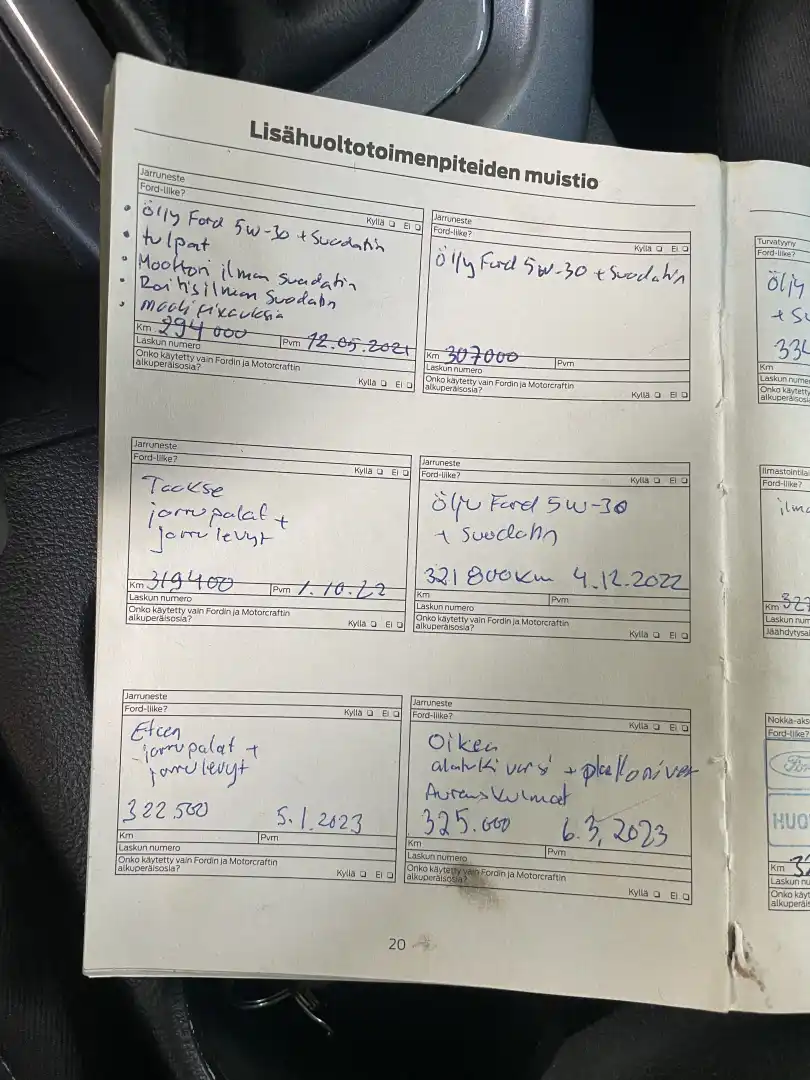 Lisähuoltotoimenpiteiden muistio
Jarruneste
Ford-liike?
Kyllä ❏ Ei ❏
• Öljy Ford 5w-30 + Suodatin
• tulpat
• Moottori ilman suodatin
• Raitisilman Suodatin
•
Km 294 000 Pvm 12.05.2021
Laskun numero
Onko käytetty vain Fordin ja Motorcraftin
alkuperäisosia?
Kyllä ❏ Ei ❏
Jarruneste
Ford-liike?
Kyllä ❏ Ei ❏
Öljy Ford 5w-30 + Suodatin
Km 307000 Pvm
Laskun numero
Onko käytetty vain Fordin ja Motorcraftin
alkuperäisosia?
Kyllä ❏ Ei ❏
Jarruneste
Ford-liike?
Kyllä ❏ Ei ❏
Taakse
jarrupalat +
jarrulevyt
Km 319400 Pvm 1.10.22
Laskun numero
Onko käytetty vain Fordin ja Motorcraftin
alkuperäisosia?
Kyllä ❏ Ei ❏
Jarruneste
Ford-liike?
Kyllä ❏ Ei ❏
Öljy Ford 5w-30
+ Suodatin
321 800km 4.12.2022
Km Pvm
Laskun numero
Onko käytetty vain Fordin ja Motorcraftin
alkuperäisosia?
Kyllä ❏ Ei ❏
Jarruneste
Ford-liike?
Kyllä ❏ Ei ❏
Eteen
jarrupalat +
jarrulevyt
322.500 5.1.2023
Km Pvm
Laskun numero
Onko käytetty vain Fordin ja Motorcraftin
alkuperäisosia?
Kyllä ❏ Ei ❏
Jarruneste
Ford-liike?
Kyllä ❏ Ei ❏
Oikea
alatukivarsi + pallonivel
Aurauskulmat
325.000 6.3.2023
Km Pvm
Laskun numero
Onko käytetty vain Fordin ja Motorcraftin
alkuperäisosia?
Kyllä ❏ Ei ❏
20
Turvatyyny
Ford-liike?
Öljy
+ Su
334
Km
Laskun nume
Onko käytetty
alkuperäisosia
Ilmastointilai
Ford-liike?
ilma
Km 327
Laskun num
Jäähdytysai
Nokka-aks
Ford-liike?
Ford
HUO
Km 32
Laskun nu
Onko käyt
alkuperäi